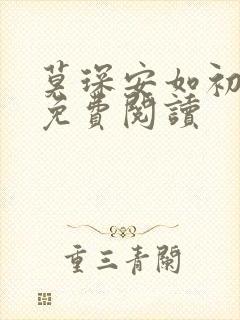 莫琛安如初
免費閱讀
重三青闌